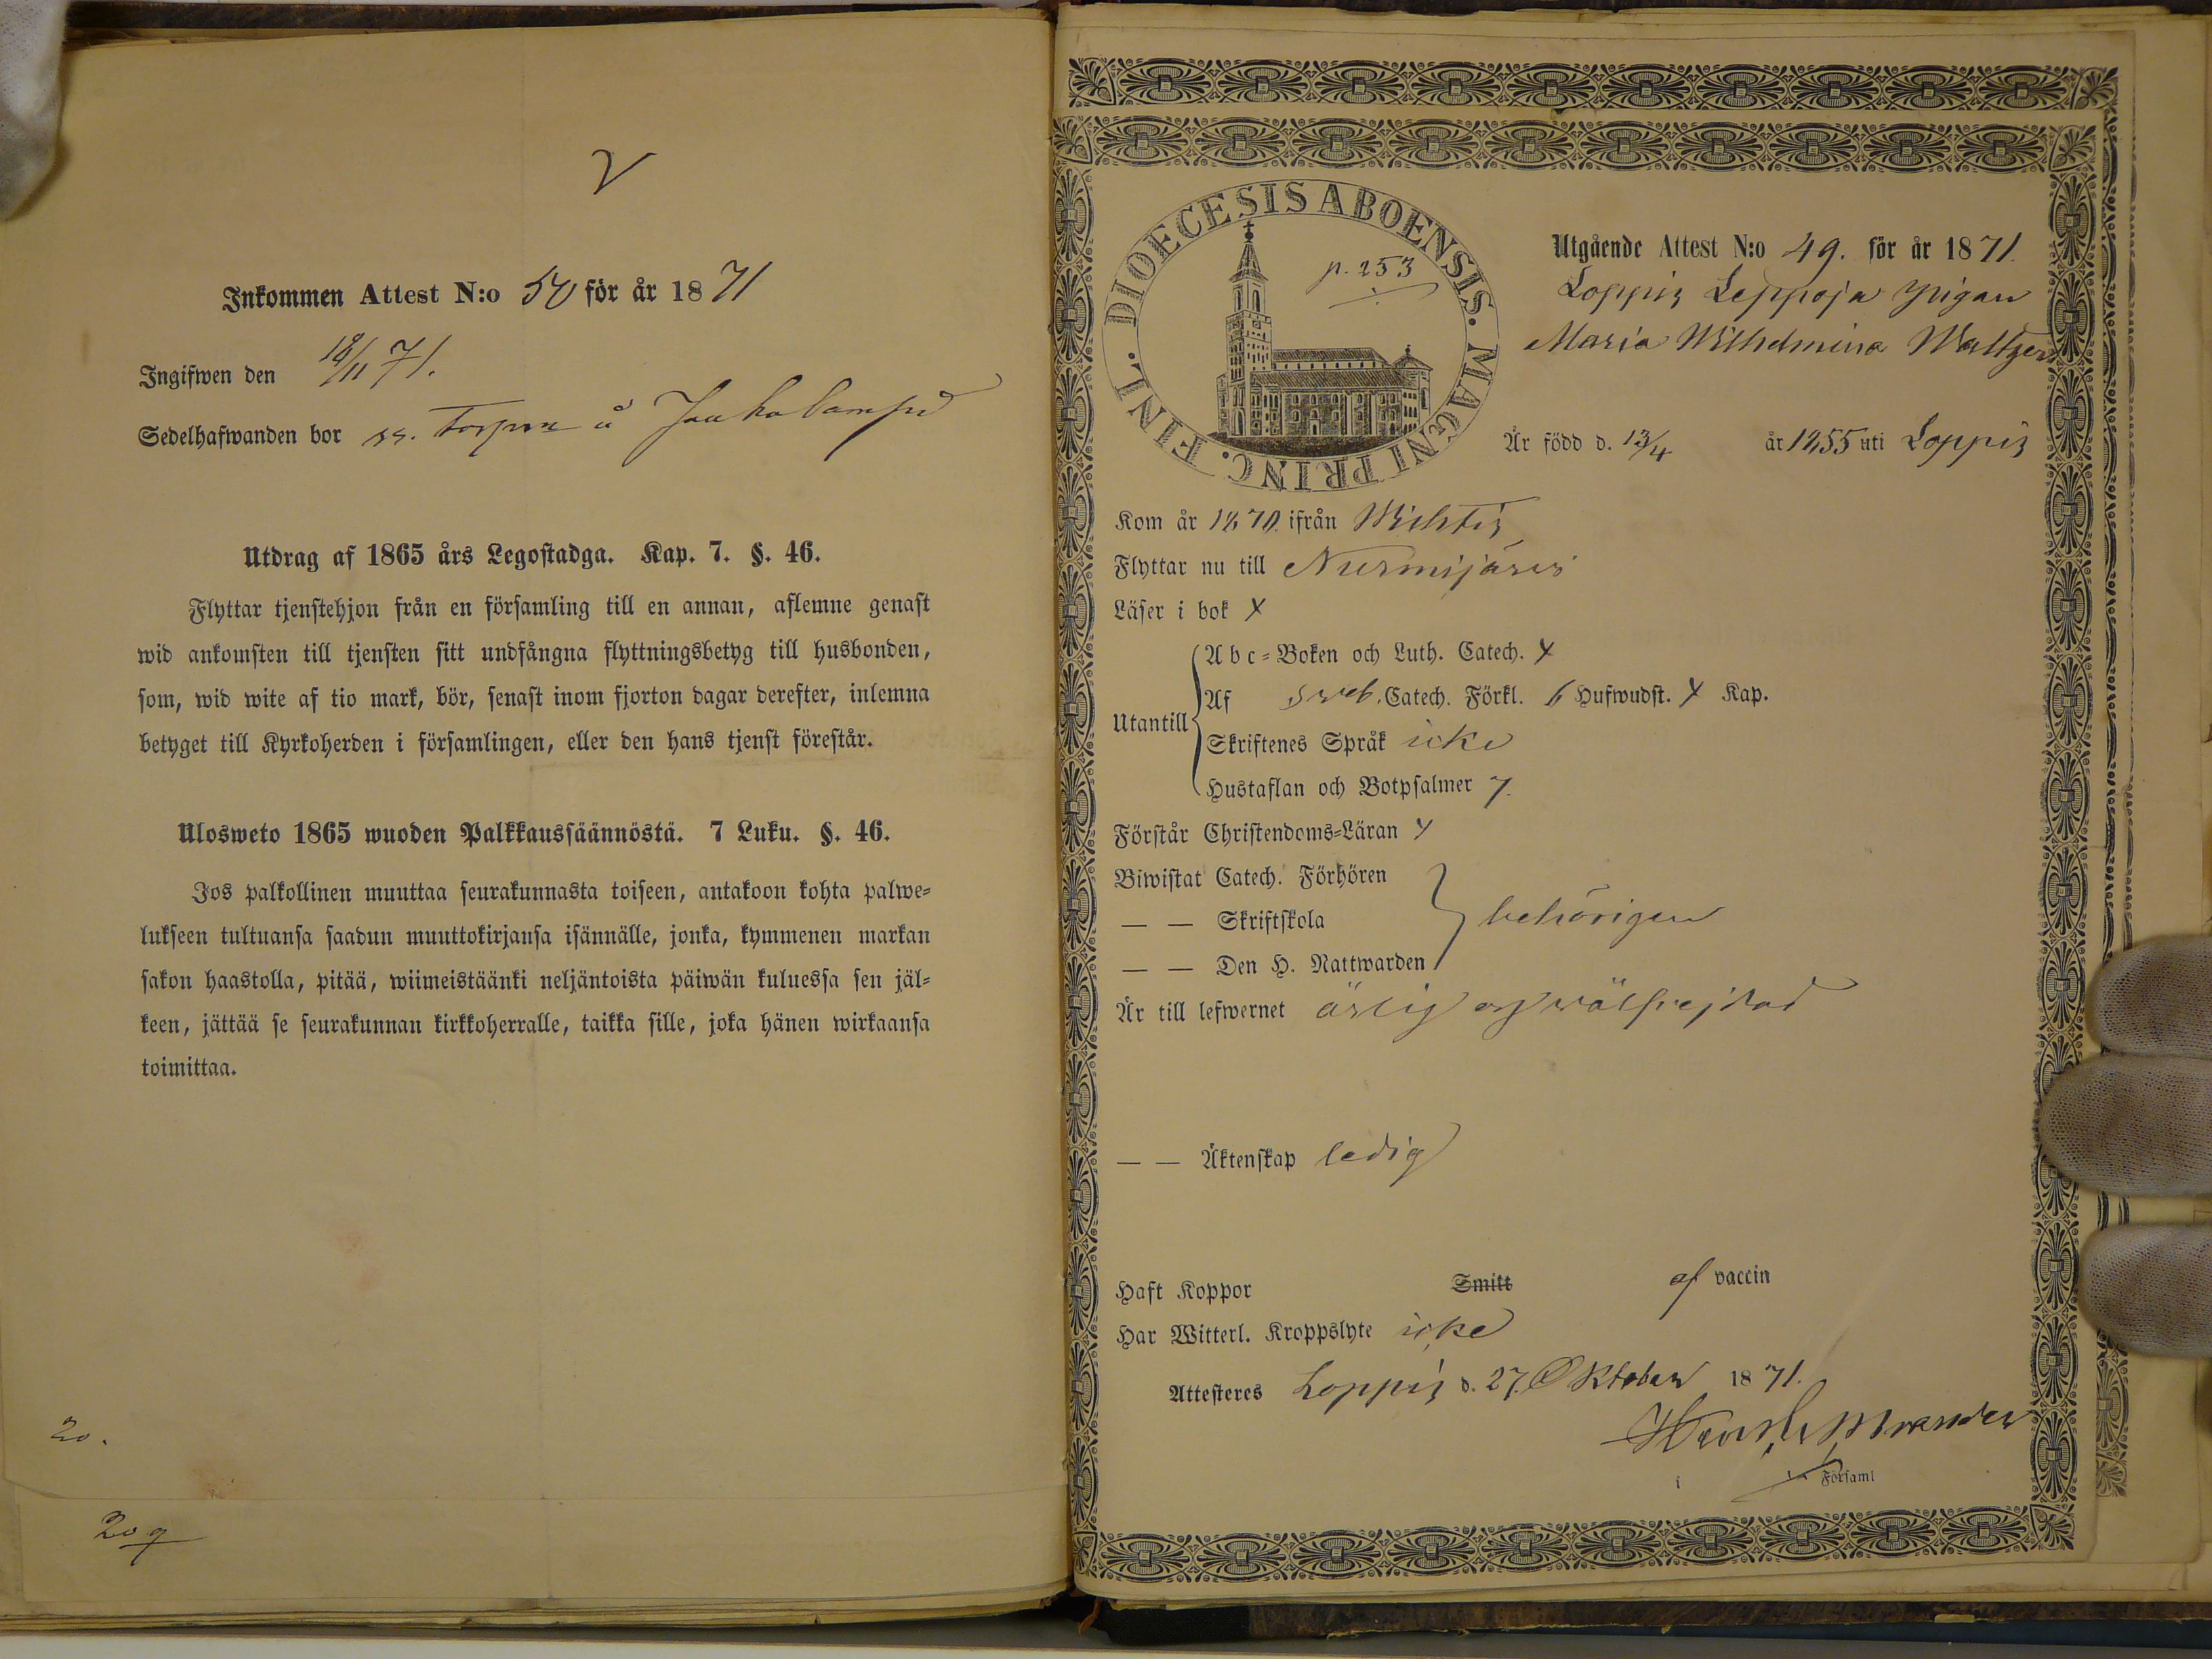 V
Inkommen Attest N:o 50 för år 1871
Ingifwen den 18/11 71.
Sedelhafwanden bor ss. Torpare å
Utdrag af 1865 års Legostadga. Kap. 7. §. 46.
Flyttar tjenstehjon från en församling till en annan, aflemne genast
wid ankomsten till tjensten sitt undfångna flyttningsbetyg till husbonden,
som, wid wite af tio mark, bör, senast inom fjorton dagar derefter, inlemna
betyget till Kyrkoherden i församlingen, eller den hans tjenst förestår.
Ulosweto 1865 wuoden Palkkaussäännöstä. 7 Luku. §. 46.
Jos palkollinen muuttaa seurakunnasta toiseen, antakoon kohta palwe-
lukseen tultuansa saadun muuttokirjansa isännälle, jonka, kymmenen markan
sakon haastolla, pitää, wiimeistäänki neljäntoista päiwän kuluessa sen jäl-
keen, jättää se seurakunnan kirkkoherralle, taikka sille, joka hänen wirkaansa
toimittaa.
20.
209
DIOECESIS ABOENSIS. MAGNI PRINC. FINL.
p. 253
Utgående Attest N:o 49. för år 1871.
Loppis Leppoja pigan
Maria Wilhelmina Waltzer
Är född d. 13/4 år 1855 uti Loppis
Kom år 1870. ifrån Wichtis
Flyttar nu till Nurmijärvi
Läser i bok x
Utantill
Abc-Boken och Luth. Catech. x
Af Sveb. Catech. Förkl. 6 Hufwudst. x Kap.
Skriftenes Språk icke
Hustaflan och Botpsalmer 7.
Förstår Christendoms-Läran x
Biwistat Catech. Förhören
— — Skriftskola behörigen
— — Den H. Nattwarden
Är till lefwernet ärlig och välfrejdad
— — Äktenskap ledig
Haft Koppor Smitt af vaccin
Har Witterl. Kroppslyte icke
Attesteres Loppis d. 27. Oktober 1871.
i Församl